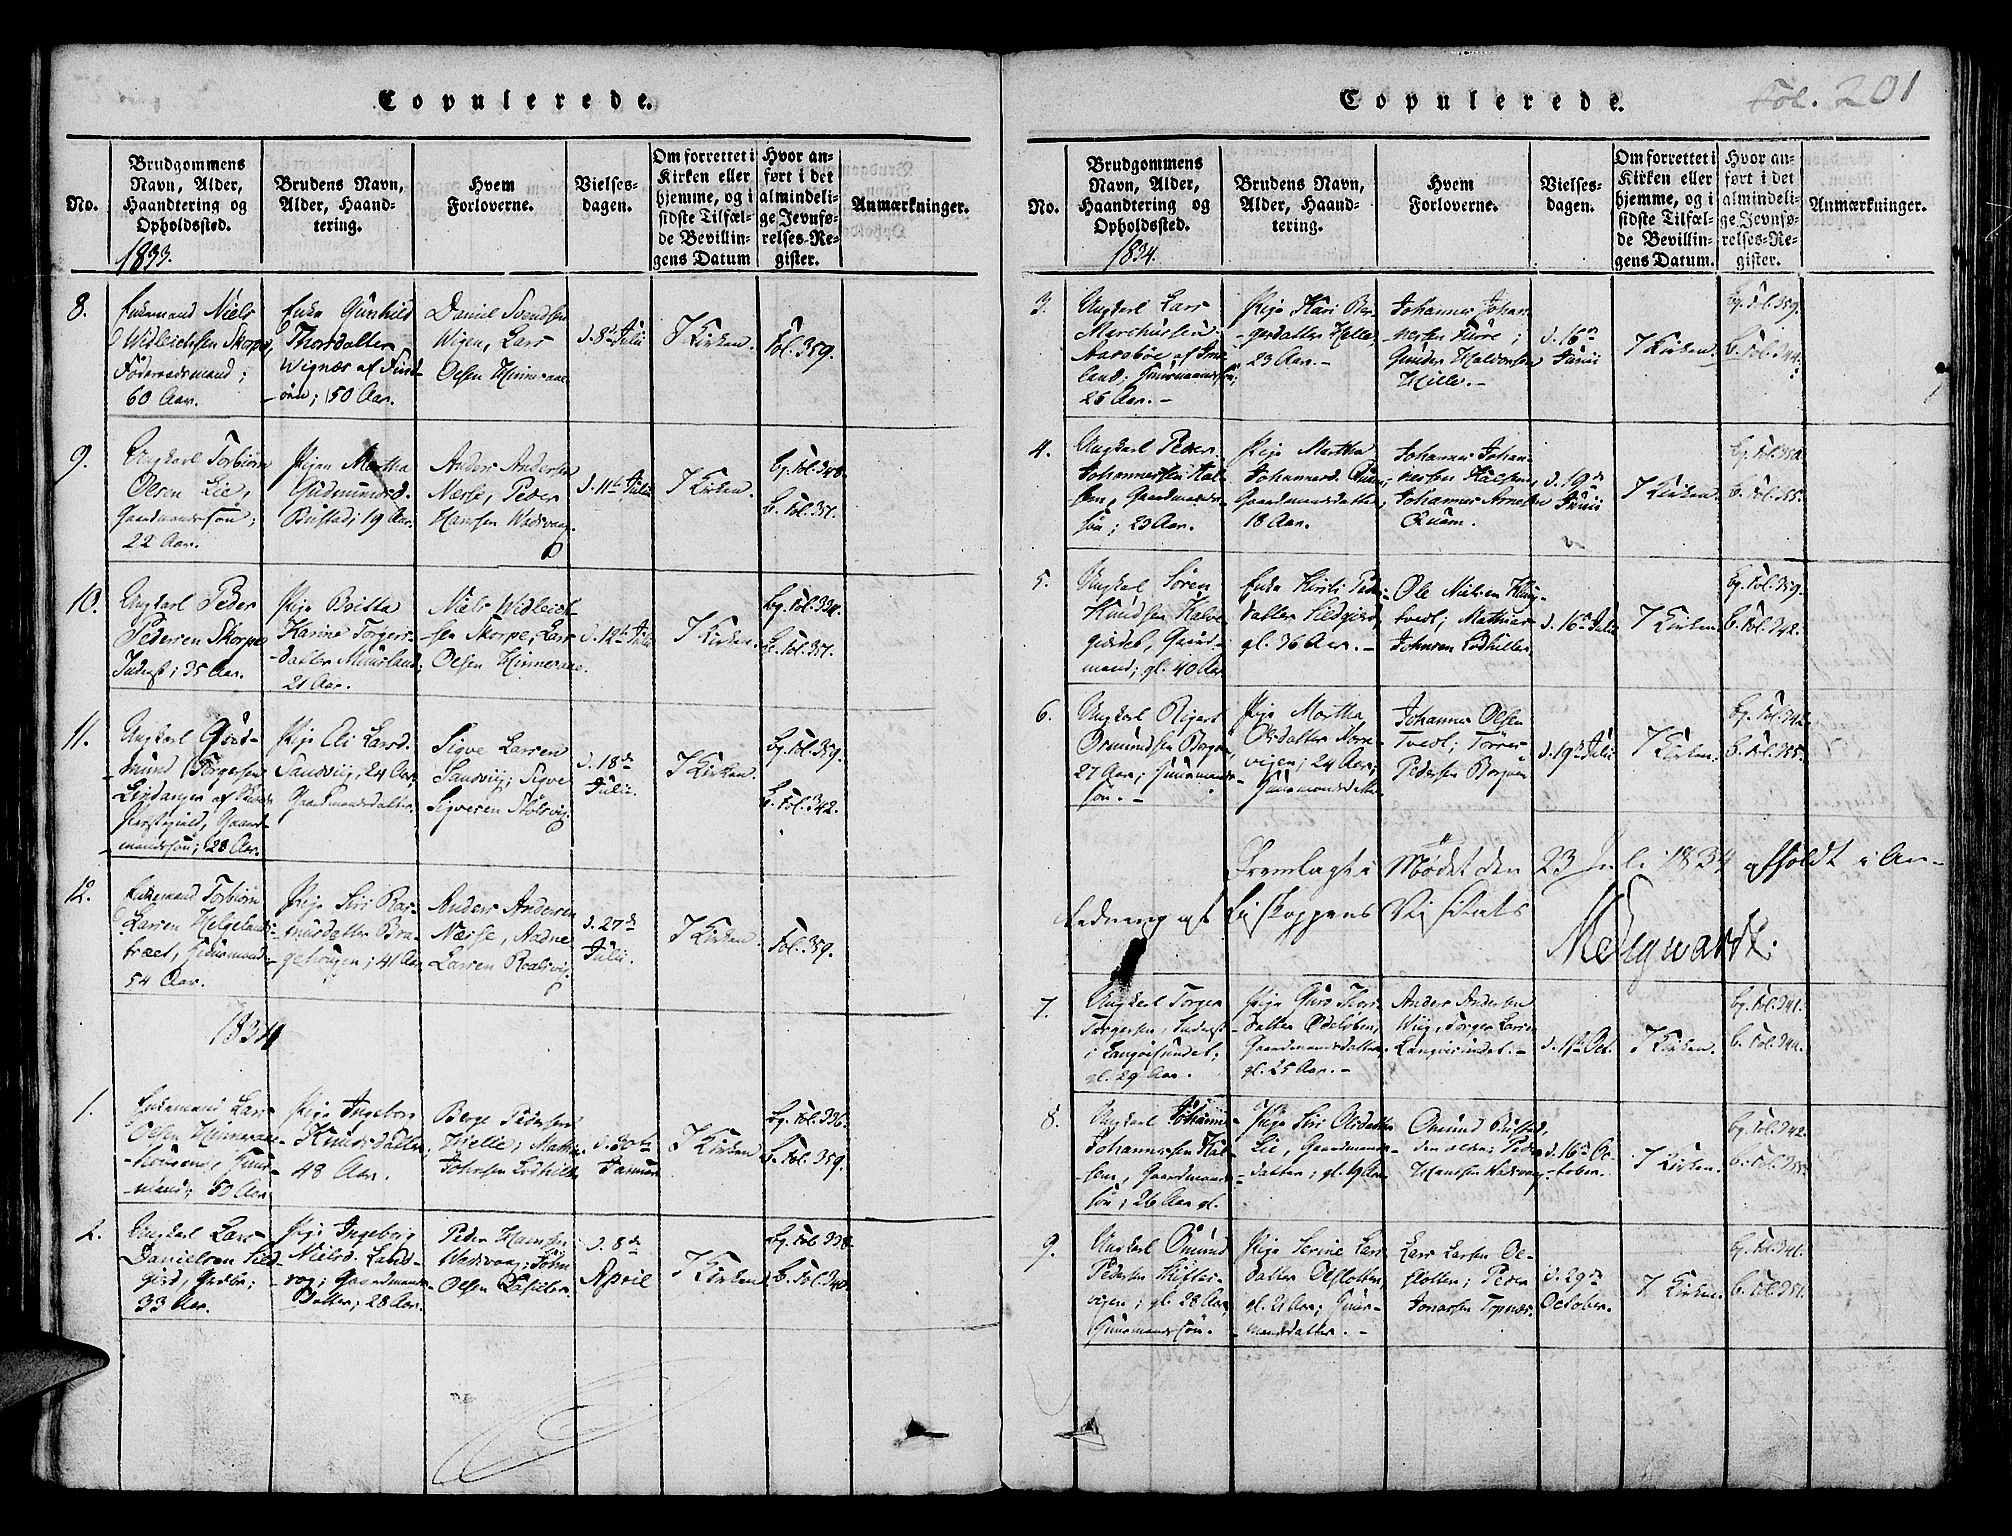 Copulerede.
No.
Brudgommens
Navn, Alder,
Haandtering og
Opholdssted.
Brudens Navn,
Alder, Haand-
tering.
Hvem
Forloverne.
Vielses-
dagen.
Om forrettet i
Kirken eller
hjemme, og i
sidste Tilfæl-
de Bevillin-
gens Datum
Hvor an-
ført i det
almindeli-
ge Jevnfø-
relses-Re-
gister.
Anmærkninger.
1833.
8.
Enkemand Niels
Widleichsen Skorpe,
Föderaadsmand;
60 Aar.
Enke Gunhild
Thorsdatter
Wignæs af
50 Aar.
Daniel Svendsen
Wigen, Lars
Olsen Hinneraae
d. 8de Julii
I Kirken.
Fol. 359.
9.
Ungkarl Torbiörn
Olsen Lie,
Gaardmandssön;
22 Aar.
Pigen Martha
Gudmundsd.
Bustad; 19 Aar.
Anders Andersen
Næsse, Peder
Hansen Wadsvaag.
d. 11te Julii
I Kirken.
Bg. Fol. 348.
B. Fol. 357.
10.
Ungkarl Peder
Pedersen Skorpe
Inderst; 35 Aar.
Pige Britta
Karine Torgers-
datter
21 Aar.
Niels Widleich-
sen Skorpe, Lars
Olsen Hinneraae.
d. 12te Julii
I Kirken.
Bg. Fol. 334.
B. Fol. 357.
11.
Ungkarl Gud-
mund Torgersen
Lindanger af
Præstegield, Gaard-
mandssön; 28 Aar.
Pige Eli Larsd.
Sandvig, 24 Aar,
Gaardmandsdatter.
Sigve Larsen
Sandvig; Sigve
Sigvesen Stölsvig.
d. 18de
Julii.
I Kirken.
Bg. Fol. 359.
B. Fol. 342.
12.
Enkemand Torbiörn
Larsen Helgelands-
54 Aar.
Pige Siri Ras-
musdatter Bra-
gehougen; 41 Aar
Anders Andersen
Næsse, Aadne
Larsen Roalsvig
d. 27de
Julii.
I Kirken.
Fol. 359.
1834
1.
Enkemand Lars
Olsen Hinneraae-
50 Aar.
Pige Ingebor
Knudsdatter
48 Aar.
Berge Pedersen
Helle; Mathias
Johnsen Lodhille
d. 30te
Januar
I Kirken
Bg. Fol. 336.
B. Fol. 359.
2.
Ungkarl Lars
Danielsen
33 Aar.
Pige Ingeborg
Nielsd. Land-
vog; Gaardmands-
datter; 28 Aar.
Peder Hansen
Wadsvaag; John
Olsen
d. 8de
April
I Kirken
Bg. Fol. 338.
B. Fol. 340.
Copulerede.
Fol. 201
No.
Brudgommens
Navn, Alder,
Haandtering og
Opholdssted.
Brudens Navn,
Alder, Haand-
tering.
Hvem
Forloverne.
Vielses-
dagen.
Om forrettet i
Kirken eller
hjemme, og i
sidste Tilfæl-
de Bevillin-
gens Datum.
Hvor an-
ført i det
almindeli-
ge Jevnfø-
relses-Re-
gister.
Anmærkninger.
1834.
3.
Ungkarl Lars
25 Aar.
Pige Kari Ber-
gesdatter Helle,
23 Aar.
Johannes Johan-
nessen Furre;
Gunder Halvorsen
Hille.
d. 16de
Junii
I Kirken.
Bg. Fol. 359.
B. Fol. 344.
4.
Ungkarl Peder
Johannessen Hal-
sen, Gaardmands-
sön; 23 Aar.
Pige Martha
Johannesd. Quam;
Gaardmandsdatter,
18 Aar.
Johannes Johan-
nessen Halsen,
Johannes Arnesen
Quam.
d. 19de
Junii
I Kirken.
Bg. Fol. 350.
B. Fol. 355.
5.
Ungkarl Sören
Knudsen
mand; gl. 40 Aar
Enke Kirsti Peders-
datter
gl. 36 Aar.
Ole Nielsen
Mathias
Johnsen Lodhille.
d. 16de Julii
I Kirken.
Bg. Fol. 359.
B. Fol. 342.
6.
Ungkarl Rigert
Osmundsen
27 Aar;
sön.
Pige Martha
Olsdatter
vigen; 24 Aar;
Johannes Olsen
Tvedt; Törres
Pedersen
d. 19de Julii
I Kirken.
Bg. Fol. 342.
B. Fol. 355.
Fremlagt i Mødet den 23 Juli 1834 afholdt i An-
ledning af Biskoppens Visitats
7.
Ungkarl Torger
Torgersen, Inderst
i Langöesundet,
gl. 29 Aar.
Pige Guro Thors-
datter
Gaardmandsdatter.
gl. 25 Aar.
Anders Andersen
Wiig, Torger Larsen
Langöesundet.
d. 1te Oct.
I Kirken.
Bg. Fol. 341.
B. Fol. 344.
8.
Ungkarl Johannes
Johannessen Hal-
sen, Gaardmands-
sön; 26 Aar gl.
Pige Siri Olsdatter
Lie, Gaardmands-
datter; gl. 19 Aar.
Omund Bustad,
den eldre; Peder
Hansen Wadsvaag
d. 16de Oc-
tober.
I Kirken.
Bg. Fol. 342.
B. Fol. 355.
9.
Ungkarl Omund
Pedersen
vigen; gl. 28 Aar,
Huusmandssön.
Pige Serine Lars-
datter Oeflotten,
gl. 21 Aar; Huus-
mandsdatter.
Lars Larsen Oe-
flotten; Peder
Jonassen Topnæs.
d. 29de
October.
I Kirken.
Bg. Fol. 341.
B. Fol. 351.